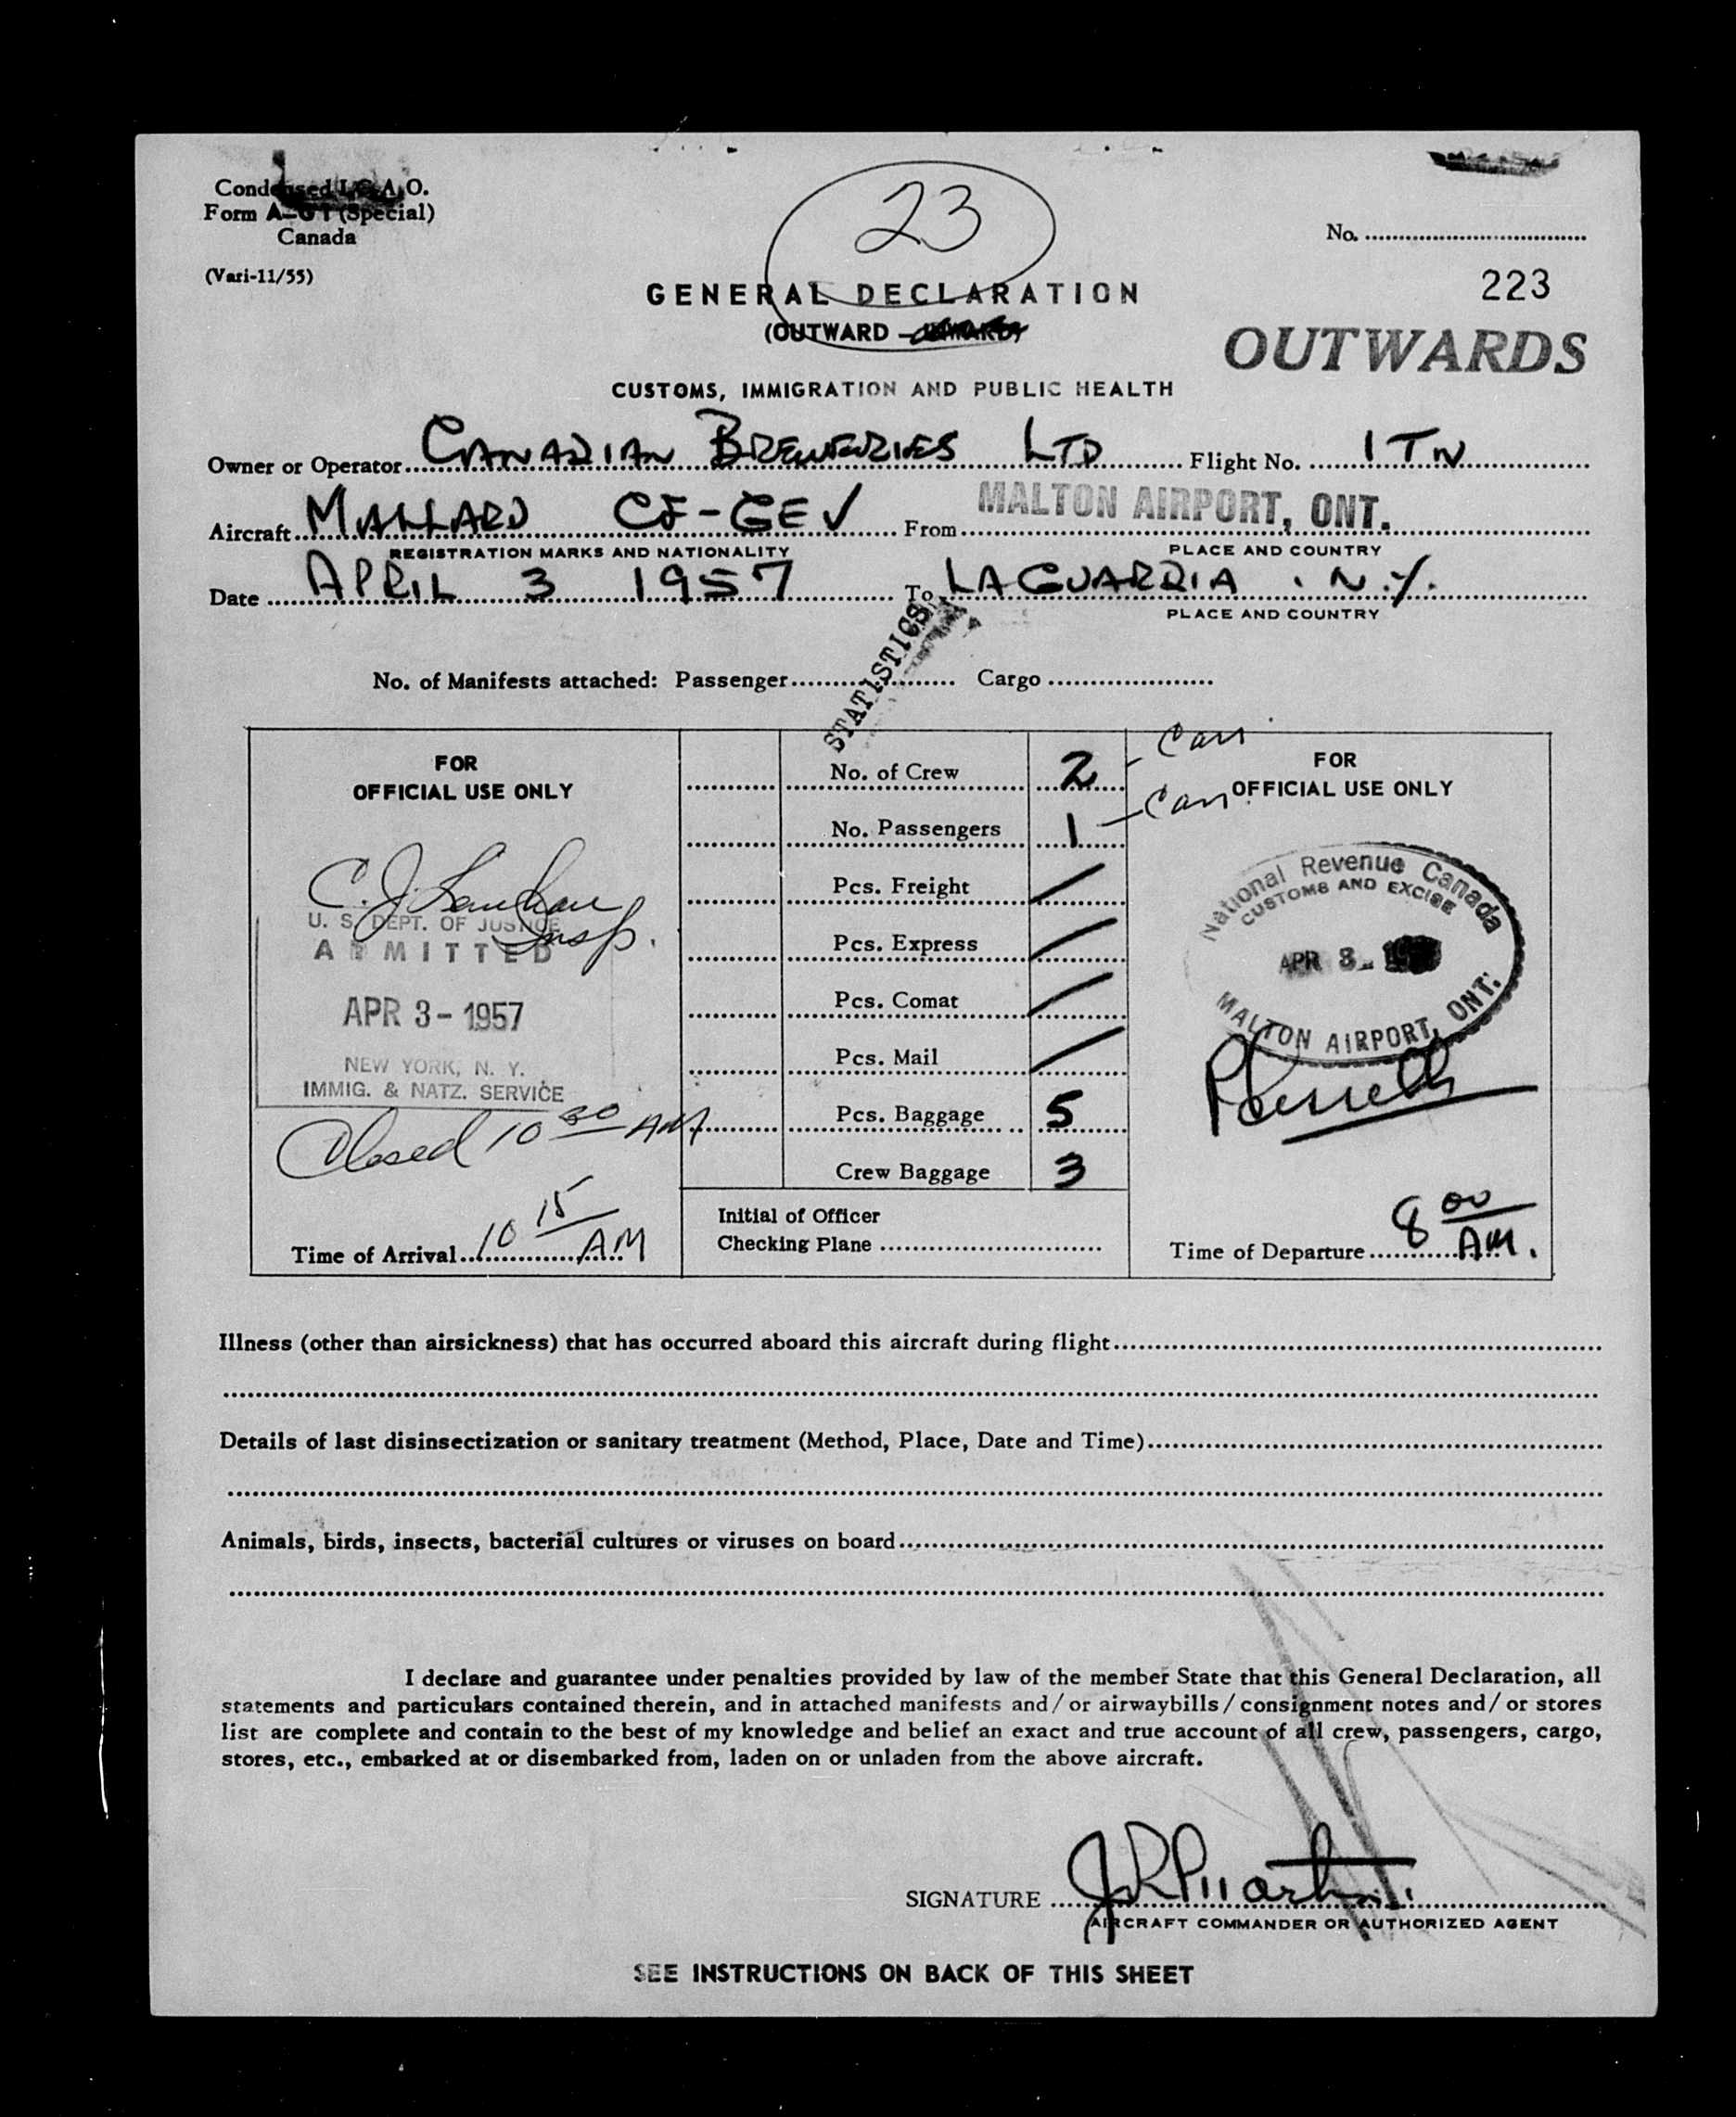 Condensed I.C.A.O.
Form A-G1 (Special)
Canada
(Vari-11/55)
23
No.
223
GENERAL DECLARATION
(OUTWARD - INWARD)
OUTWARDS
CUSTOMS, IMMIGRATION AND PUBLIC HEALTH
Owner or Operator CANADIAN BREWERIES LTD Flight No. ITN
Aircraft MALLARD CF-GEV From MALTON AIRPORT, ONT.
REGISTRATION MARKS AND NATIONALITY PLACE AND COUNTRY
Date APRIL 3 1957 To LAGUARDIA. N.Y.
PLACE AND COUNTRY
STATISTICS
No. of Manifests attached: Passenger Cargo
FOR
OFFICIAL USE ONLY
C.J.
Insp.
U. S. DEPT. OF JUSTICE
ADMITTED
APR 3 - 1957
NEW YORK, N. Y.
IMMIG. & NATZ. SERVICE
Closed 10 30 AM
Time of Arrival 10 15 AM
No. of Crew 2 - Can
No. Passengers 1 - Can
Pcs. Freight /
Pcs. Express /
Pcs. Comat /
Pcs. Mail /
Pcs. Baggage 5
Crew Baggage 3
Initial of Officer
Checking Plane
FOR
OFFICIAL USE ONLY
National Revenue Canada
CUSTOMS AND EXCISE
APR 3 -
MALTON AIRPORT, ONT.
Time of Departure 8 00 AM.
Illness (other than airsickness) that has occurred aboard this aircraft during flight
Details of last disinsectization or sanitary treatment (Method, Place, Date and Time)
Animals, birds, insects, bacterial cultures or viruses on board
I declare and guarantee under penalties provided by law of the member State that this General Declaration, all
statements and particulars contained therein, and in attached manifests and/or airwaybills/consignment notes and/or stores
list are complete and contain to the best of my knowledge and belief an exact and true account of all crew, passengers, cargo,
stores, etc., embarked at or disembarked from, laden on or unladen from the above aircraft.
SIGNATURE JRP Martin
AIRCRAFT COMMANDER OR AUTHORIZED AGENT
SEE INSTRUCTIONS ON BACK OF THIS SHEET